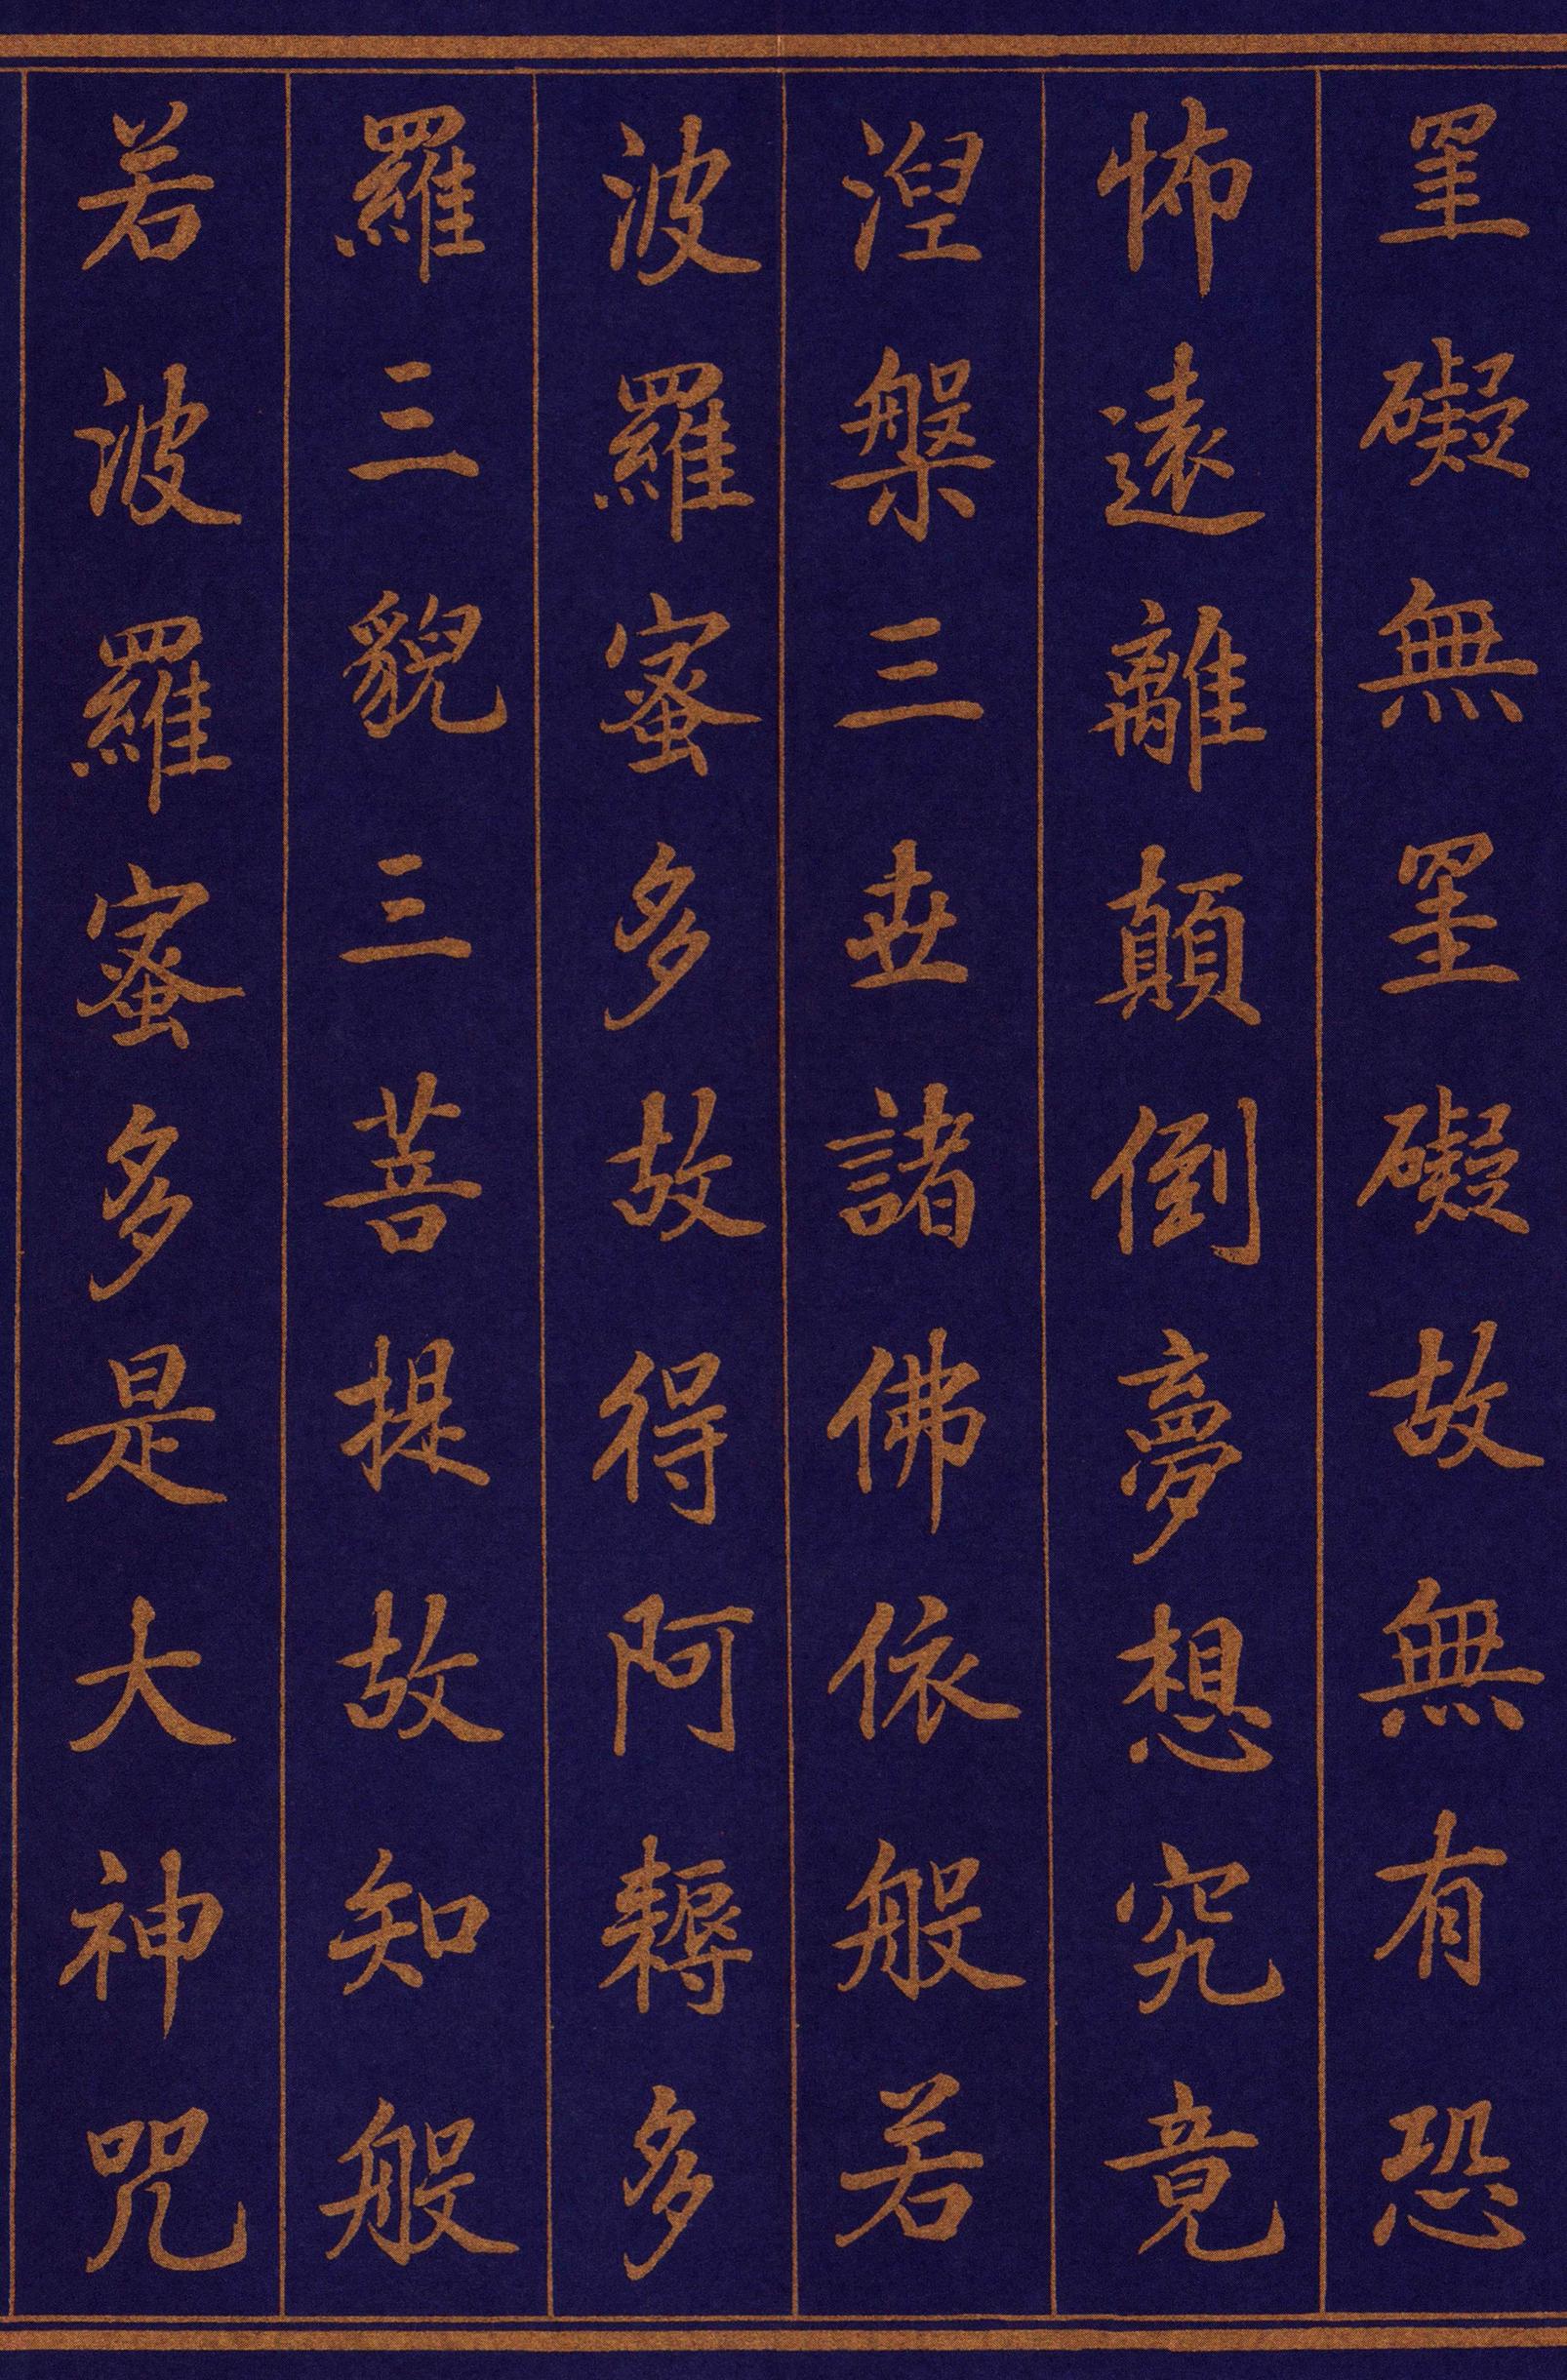 罣礙無罣礙故無有恐
怖遠離顛倒夢想究竟
涅槃三世諸佛依般若
波羅蜜多故得阿耨多
羅三藐三菩提故知般
若波羅蜜多是大神咒